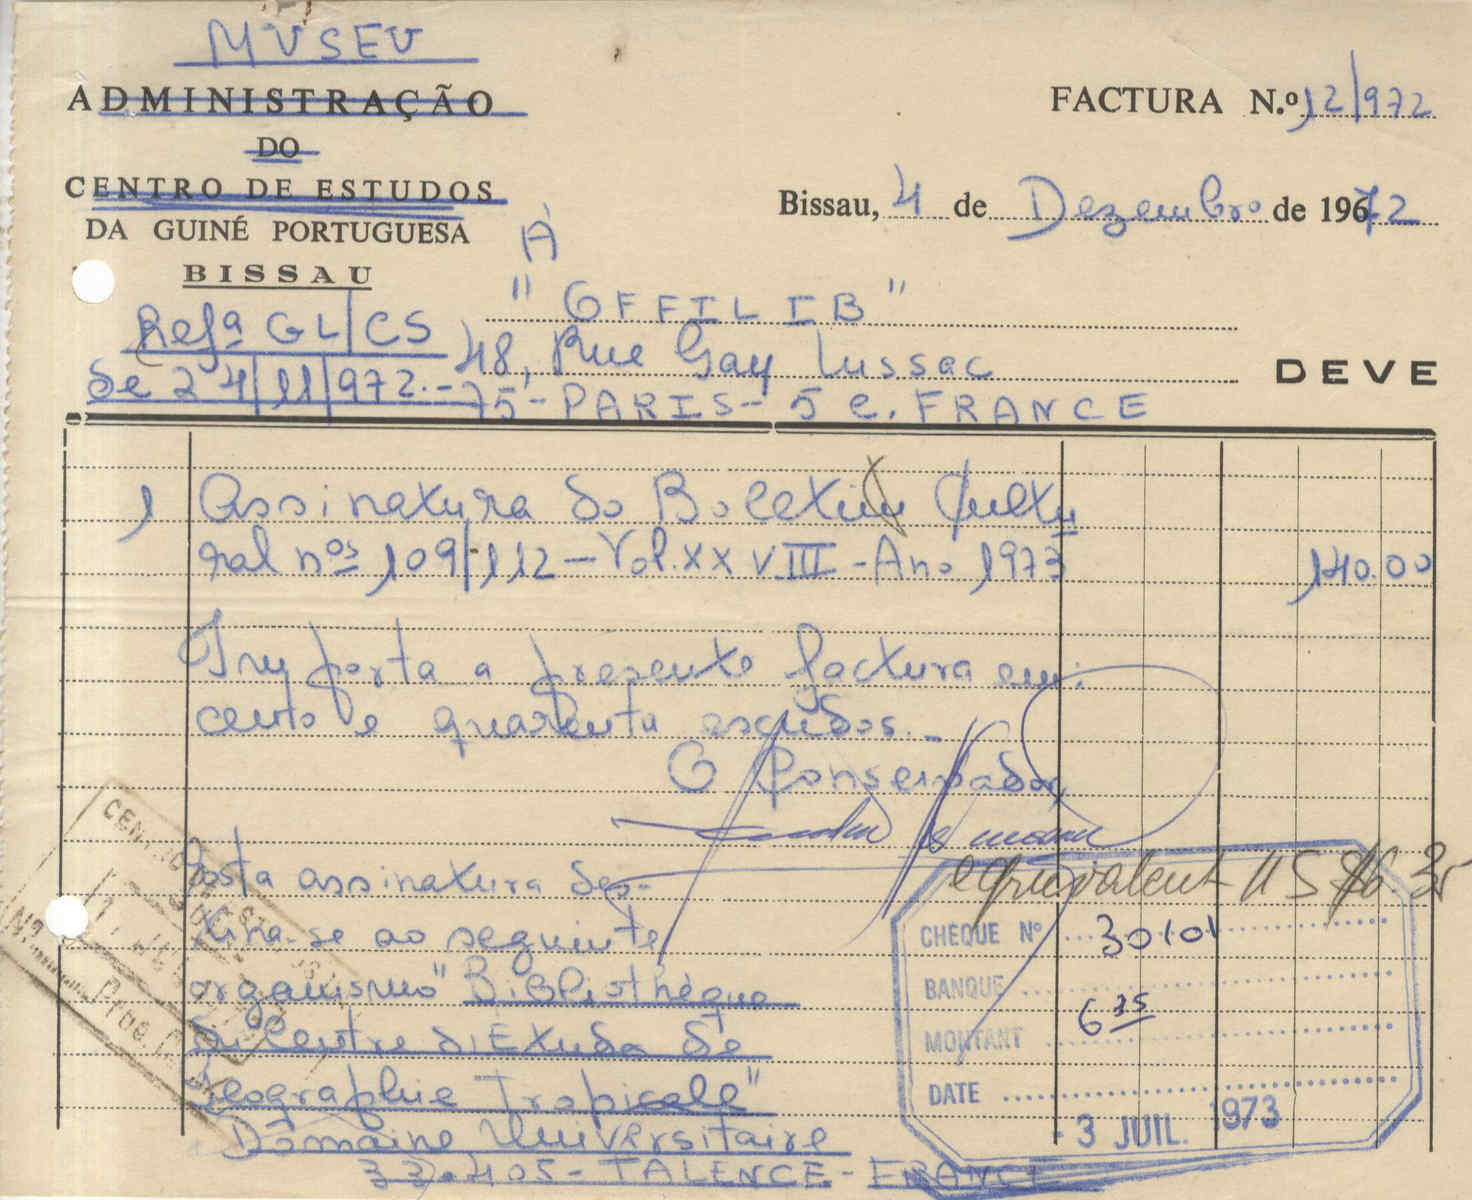 MUSEU
ADMINISTRAÇÃO
DO
CENTRO DE ESTUDOS
DA GUINÉ PORTUGUESA
BISSAU
FACTURA N.º 12/972
Bissau, 4 de Dezembro de 1972
À
"OFFILIB"
Refª GL/CS
48, Rue Gay Lussac
DEVE
de 24/11/972.-
75-PARIS-5 e. FRANCE
1 Assinatura do Boletim Cultu
ral nos 109/112-Vol.XXVIII-Ano 1973 140.00
Importa a presente factura em:
cento e quarenta escudos.-
O Conservador,
equivalent US $ 6.35
Esta assinatura des-
tina-se ao seguinte
organismo "Bibliothèque
du Centre d'Etuda de
Geographie Tropicale"
Domaine Universitaire
33.405-TALENCE-FRANCE
CHEQUE Nº 30101
BANQUE
MONTANT 6 35
DATE
- 3 JUIL. 1973